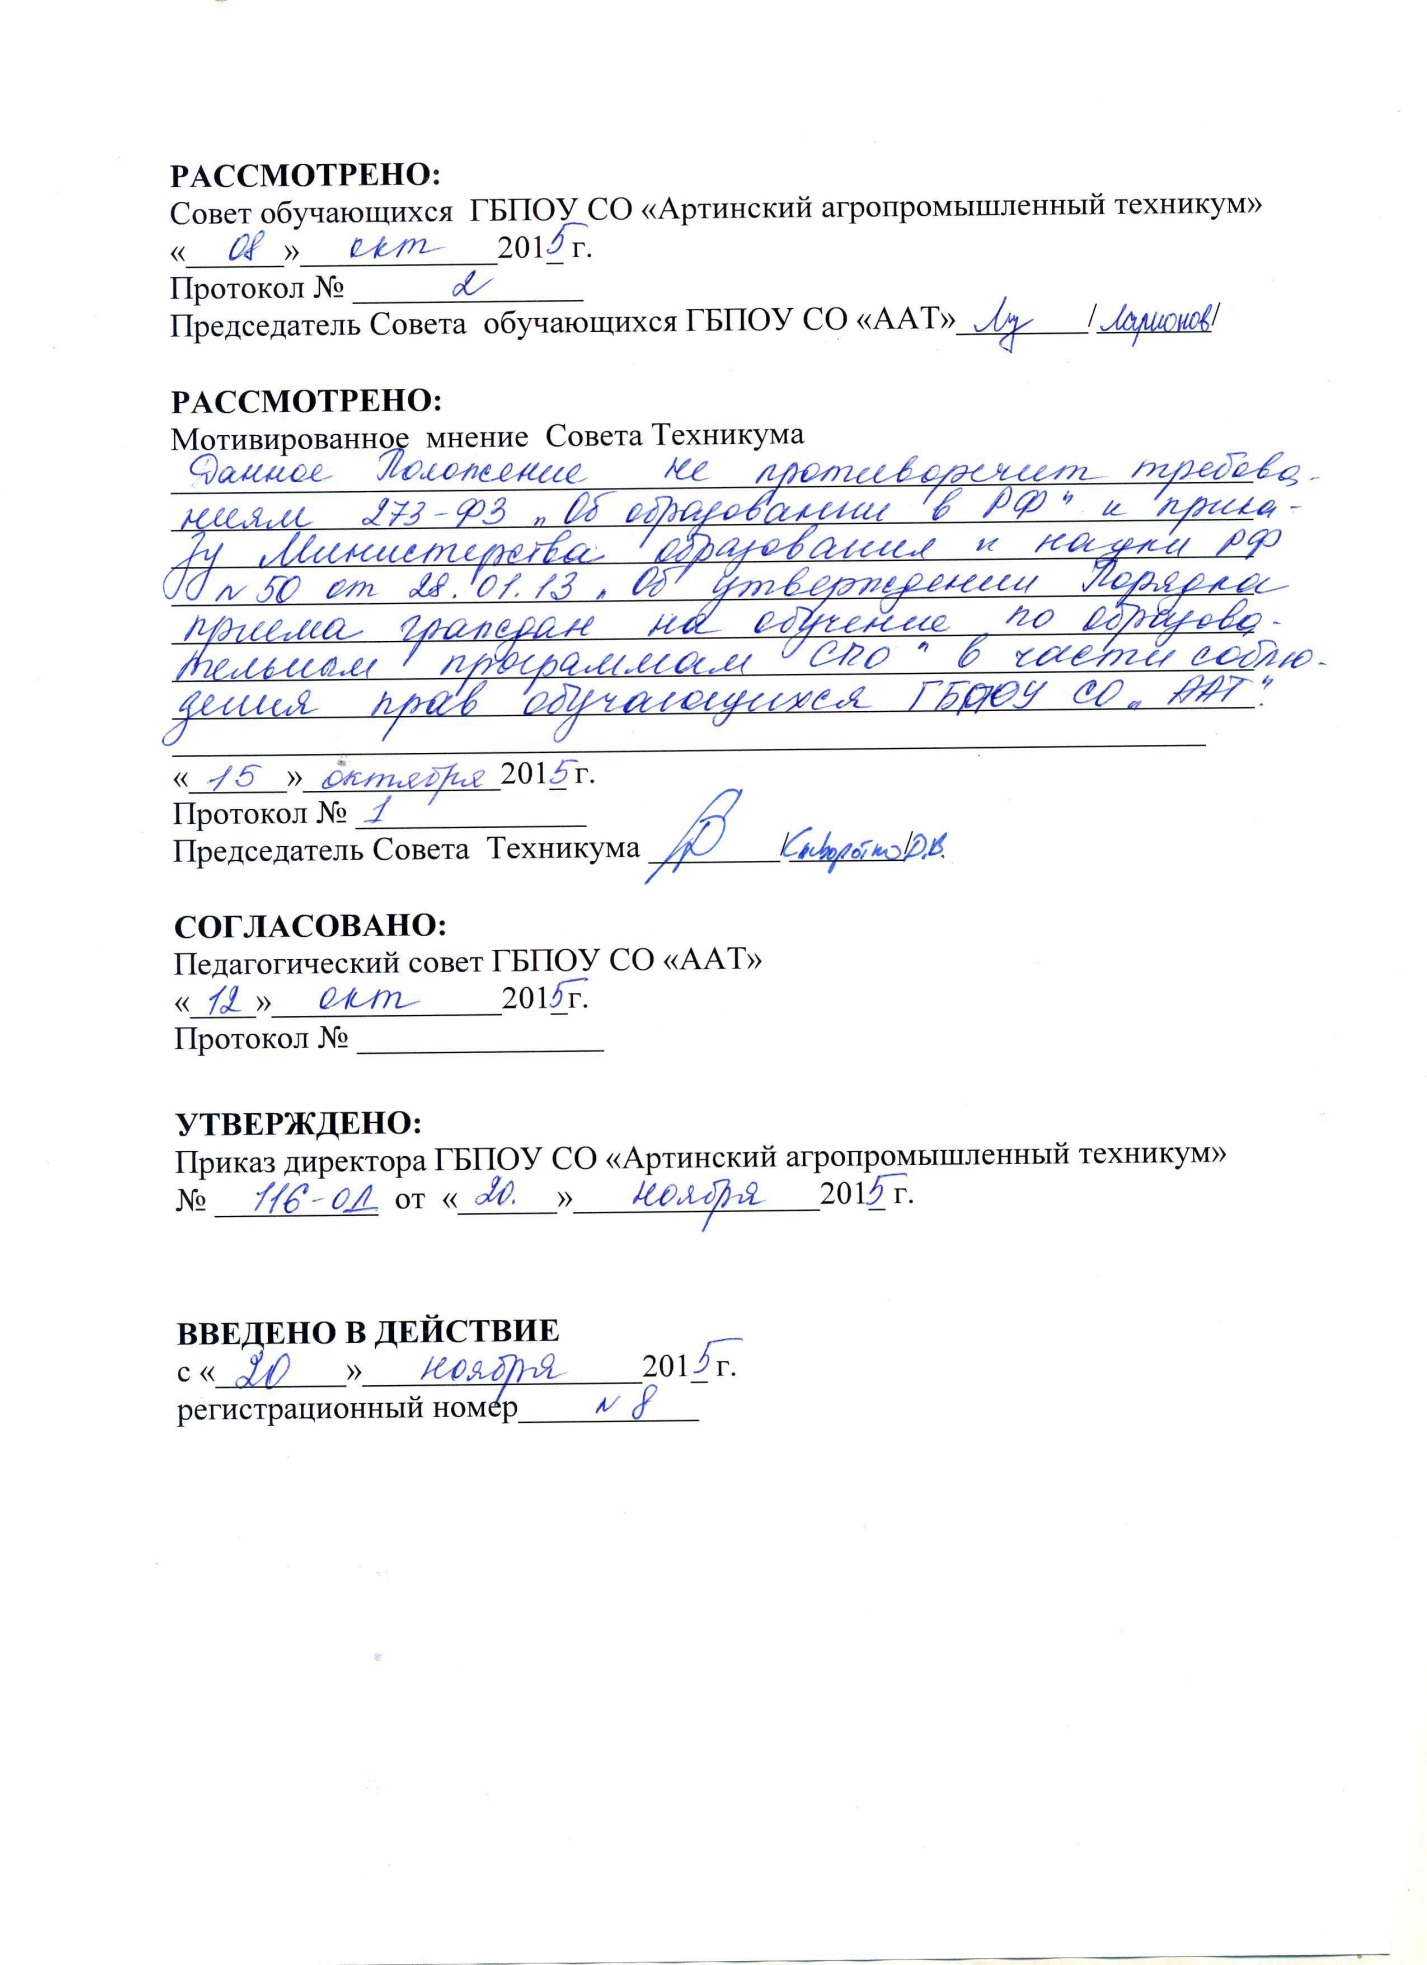 РАССМОТРЕНО:
Совет обучающихся ГБПОУ СО «Артинский агропромышленный техникум»
«08» окт 2015 г.
Протокол № 2
Председатель Совета обучающихся ГБПОУ СО «ААТ» / Ларионов/
РАССМОТРЕНО:
Мотивированное мнение Совета Техникума
Данное Положение не противоречит требова-
ниям 273-ФЗ „Об образовании в РФ" и прика-
зу Министерства образования и науки РФ
№ 50 от 28.01.13 „Об утверждении Порядка
приема граждан на обучение по образова-
тельным программам СПО" в части соблю-
дения прав обучающихся ГБПОУ СО „ААТ".
«15» октября 2015 г.
Протокол № 1
Председатель Совета Техникума / / Д.В.
СОГЛАСОВАНО:
Педагогический совет ГБПОУ СО «ААТ»
«12» окт 2015г.
Протокол №
УТВЕРЖДЕНО:
Приказ директора ГБПОУ СО «Артинский агропромышленный техникум»
№ 116-од от «20.» ноября 2015 г.
ВВЕДЕНО В ДЕЙСТВИЕ
с «20» ноября 2015 г.
регистрационный номер № 8